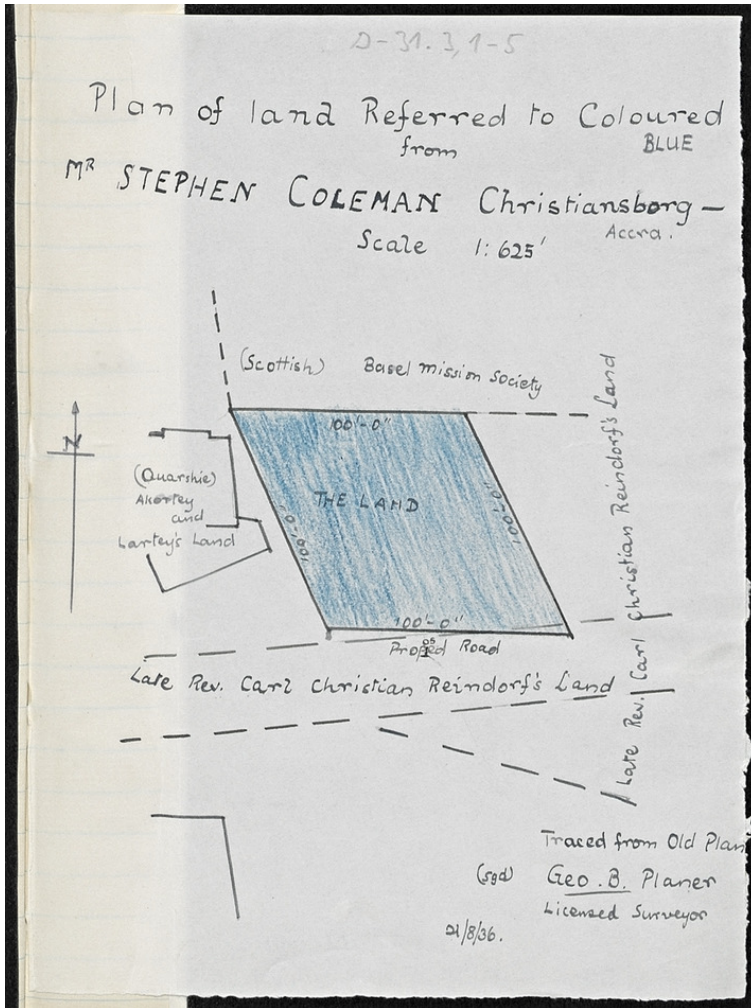 D-31.3,1-5
Plan of land Referred to Coloured
from BLUE
Mr STEPHEN COLEMAN Christiansborg –
Accra.
Scale 1:625'
(Scottish) Basel mission Society
100'-0"
N
(Quarshie)
Akortey
and
Lartey's Land
THE LAND
100'-0"
100'-0"
100'-0"
Proposed Road
Late Rev. Carl Christian Reindorf's Land
Late Rev. Carl Christian Reindorf's Land
Traced from Old Plan
(sgd) Geo. B. Planer
Licensed Surveyor
21/8/36.